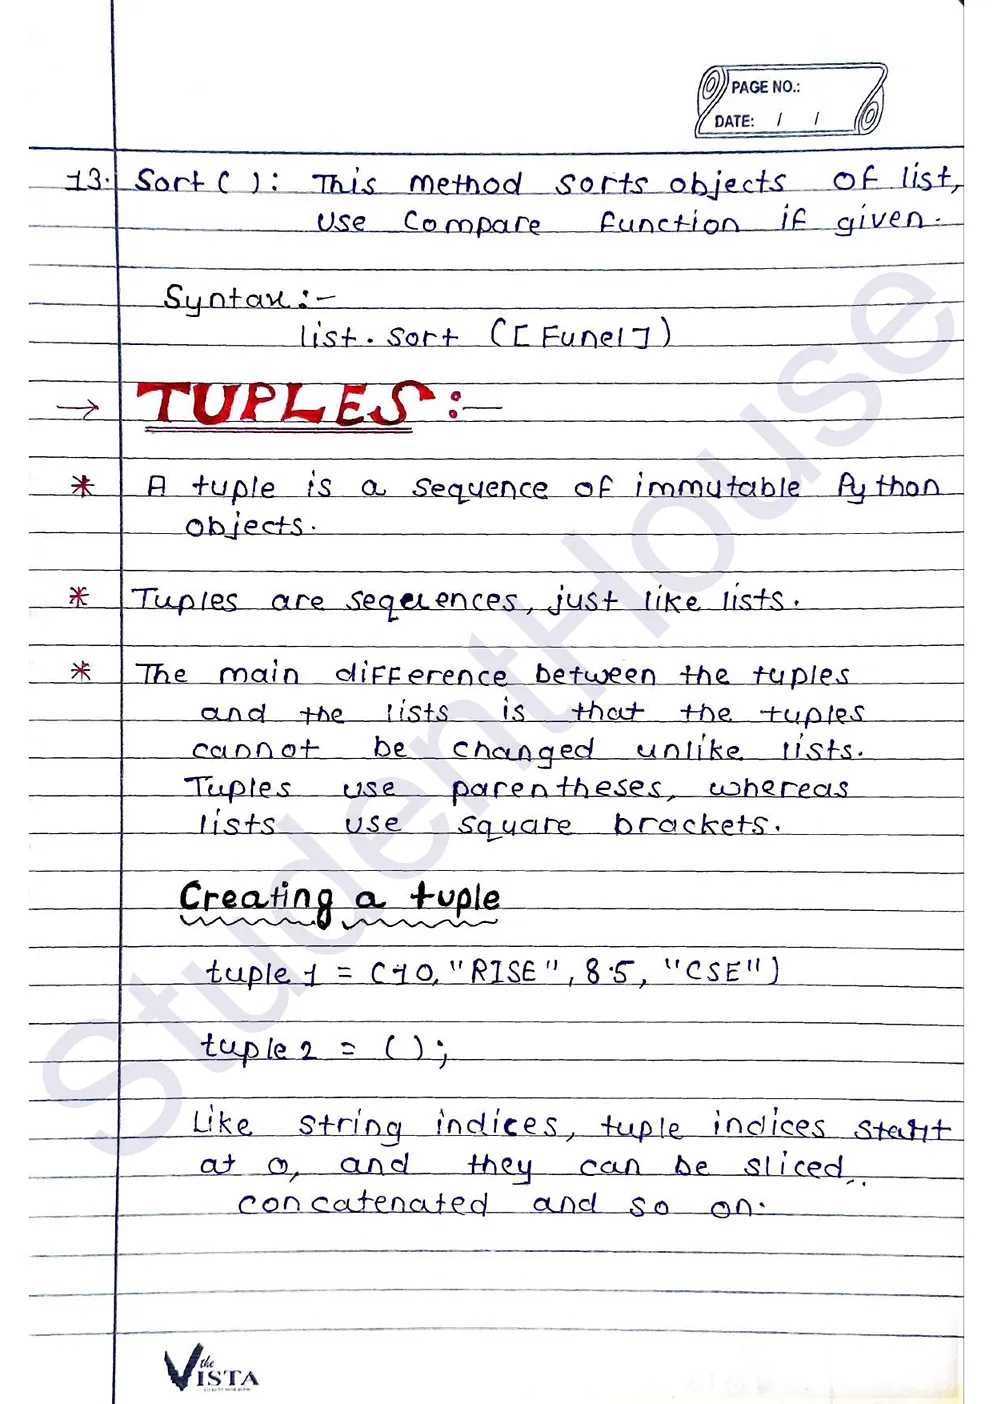 PAGE NO.:
DATE: / /
13. Sort( ): This method sorts objects of list,
use compare function if given.
Syntax:-
list.sort ([Fune1])
→ TUPLES:-
* A tuple is a sequence of immutable Python
objects.
* Tuples are sequences, just like lists.
* The main difference between the tuples
and the lists is that the tuples
cannot be changed unlike lists.
Tuples use parentheses, whereas
lists use square brackets.
Creating a tuple
tuple1 = (10, "RISE", 8.5, "CSE")
tuple2 = ( );
Like string indices, tuple indices start
at 0, and they can be sliced,
concatenated and so on.
StudentHouse
the
VISTA